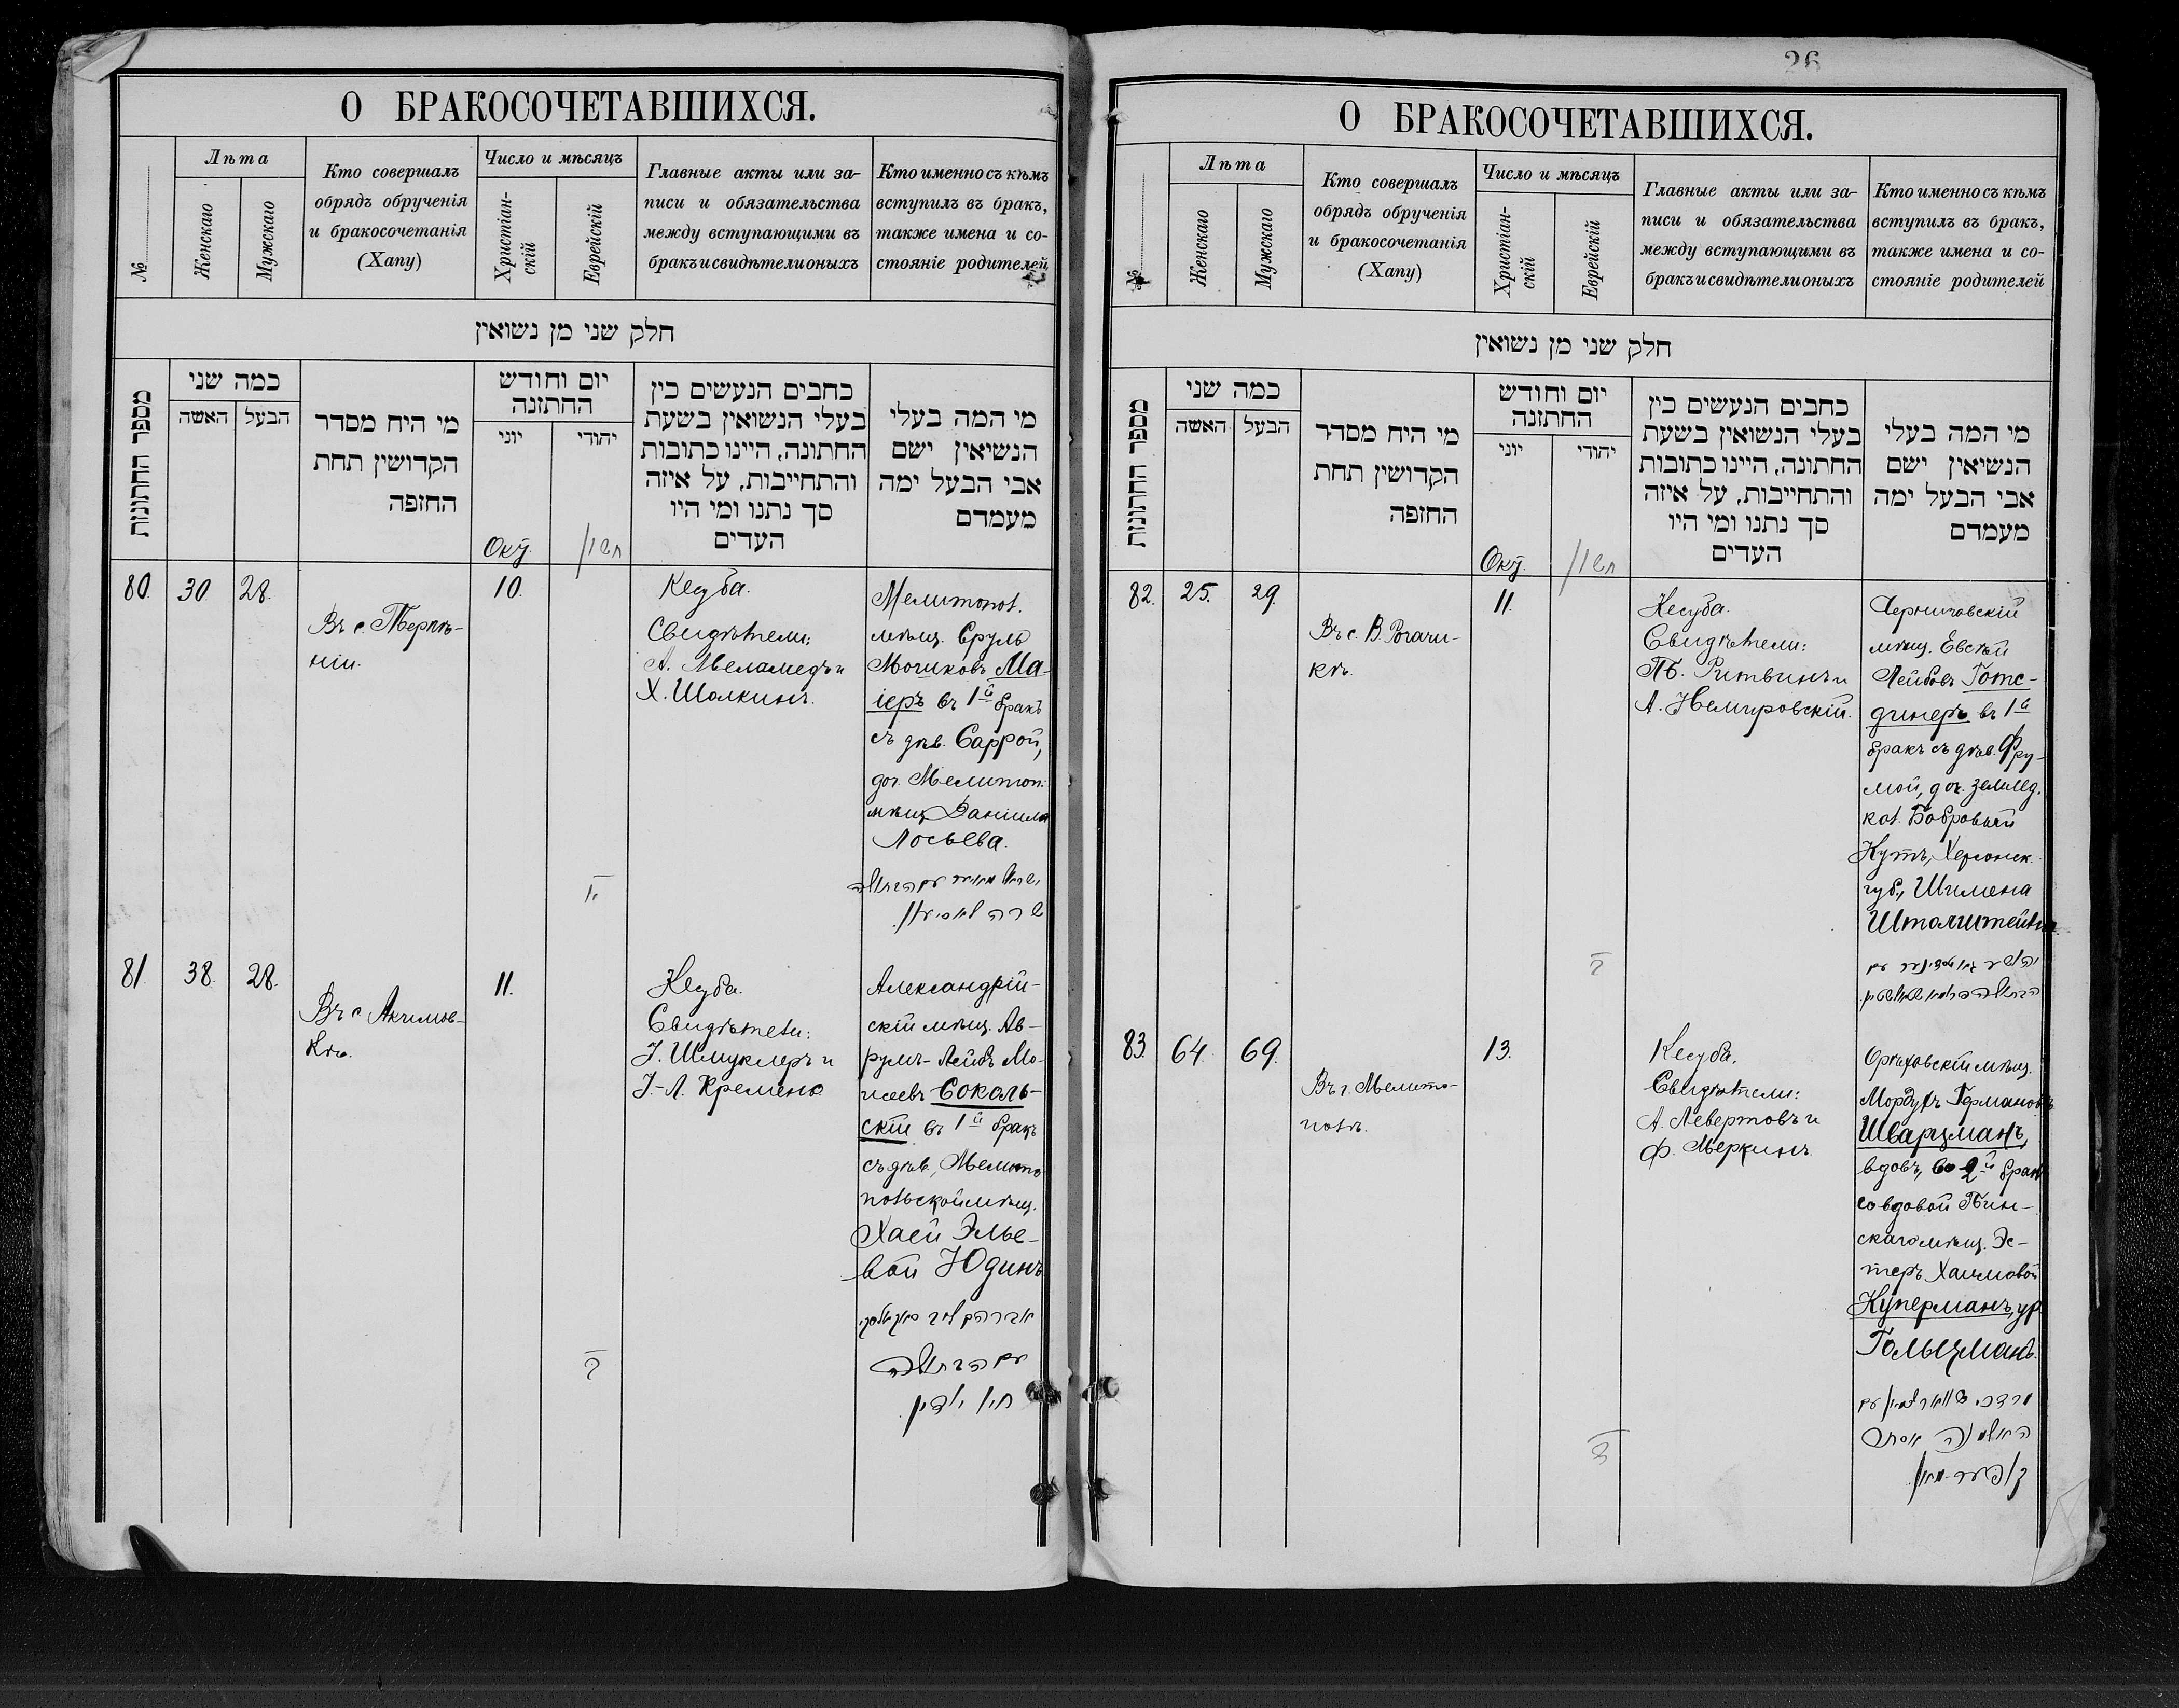 О БРАКОСОЧЕТАВШИХСЯ.
№
Лѣта
Женскаго
Мужскаго
Кто совершалъ
обрядъ обрученія
и бракосочетанія
(Хапу)
Число и мѣсяцъ
Христіан-
скій
Еврейскій
Главные акты или за-
писи и обязательства
между вступающими въ
бракъ и свидѣтели оныхъ
Кто именно съ кѣмъ
вступилъ въ бракъ,
также имена и со-
стояніе родителей
חלק שני מן נשואין
מספר החתונות
כמה שני
האשה
הבעל
מי היח מסדר
הקדושין תחת
החופה
יום וחודש
החתונה
יוני
יהודי
Окт.
כתבים הנעשים בין
בעלי הנשואין בשעת
החתונה, היינו כתובות
והתחייבות, על איזה
סך נתנו ומי היו
העדים
מי המה בעלי
הנשיאין ישם
אבי הבעל ימה
מעמדם
80.
30
28.
Въ с. Терпѣ-
ніи.
10.
Кесуба.
Свидѣтели:
А. Меламедъ и
Х. Шолкинъ.
Мелитопол.
мѣщ. Сруль
Мошковъ Ма-
іеръ въ 1й бракъ
съ дѣв. Саррой,
доч. Мелитоп.
мѣщ. Даніила
Лосьева.
81.
38.
28.
Въ с Акимов-
кѣ.
11.
Кесуба.
Свидѣтели:
І. Шмуклеръ и
І.-Л. Кремень
Александрій-
скій мѣщ. Ав-
румъ-Лейбъ Мо-
исеевъ Соколь-
скій въ 1й бракъ
съ дѣв., Мелито
польской мѣщ.
Хаей Элье-
вой Юдинъ
אברהם ליב סאקאלסקי
עם הבתולה
חיו יודין
26
О БРАКОСОЧЕТАВШИХСЯ.
№
Лѣта
Женскаго
Мужскаго
Кто совершалъ
обрядъ обрученія
и бракосочетанія
(Хапу)
Число и мѣсяцъ
Христіан-
скій
Еврейскій
Главные акты или за-
писи и обязательства
между вступающими въ
бракъ и свидѣтели оныхъ
Кто именно съ кѣмъ
вступилъ въ бракъ,
также имена и со-
стояніе родителей
חלק שני מן נשואין
מספר החתונות
כמה שני
האשה
הבעל
מי היח מסדר
הקדושין תחת
החופה
יום וחודש
החתונה
יוני
יהודי
Окт.
כתבים הנעשים בין
בעלי הנשואין בשעת
החתונה, היינו כתובות
והתחייבות, על איזה
סך נתנו ומי היו
העדים
מי המה בעלי
הנשיאין ישם
אבי הבעל ימה
מעמדם
82.
25.
29.
Въ с. В. Рогачи-
кѣ.
11.
Кесуба.
Свидѣтели:
Ритвинъ и
А. Немировскій.
мѣщ. Евсѣй
Лейбовъ Готс-
динеръ въ 1й
бракъ съ дѣв. Фру-
мой, доч. землед.
кол. Бобровый
Кутъ, Херсонск.
губ., Шимена
Штолитейна.
83.
64.
69.
Въ г. Мелито-
полѣ.
13.
Кесуба.
Свидѣтели:
А. Левертовъ и
Ф. Меркинъ
Орѣховскій мѣщ.
Мордухъ Германовъ
Шварцманъ,
вдовъ, во 2й бракъ
со вдовой Пин-
скаго мѣщ. Эс-
теръ Хаимовой
Куперманъ, ур.
Гольцманъ.
האלמנה אסתר
קופערמאן